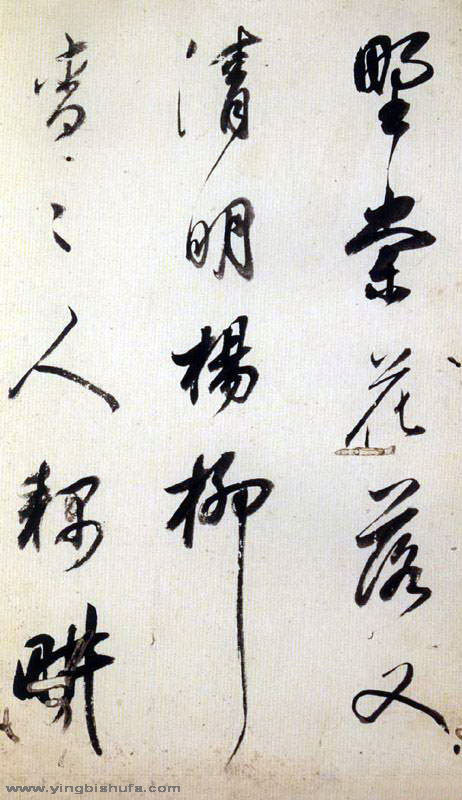 野棠花落又
清明楊柳
青々人耦畊
www.yingbishufa.com